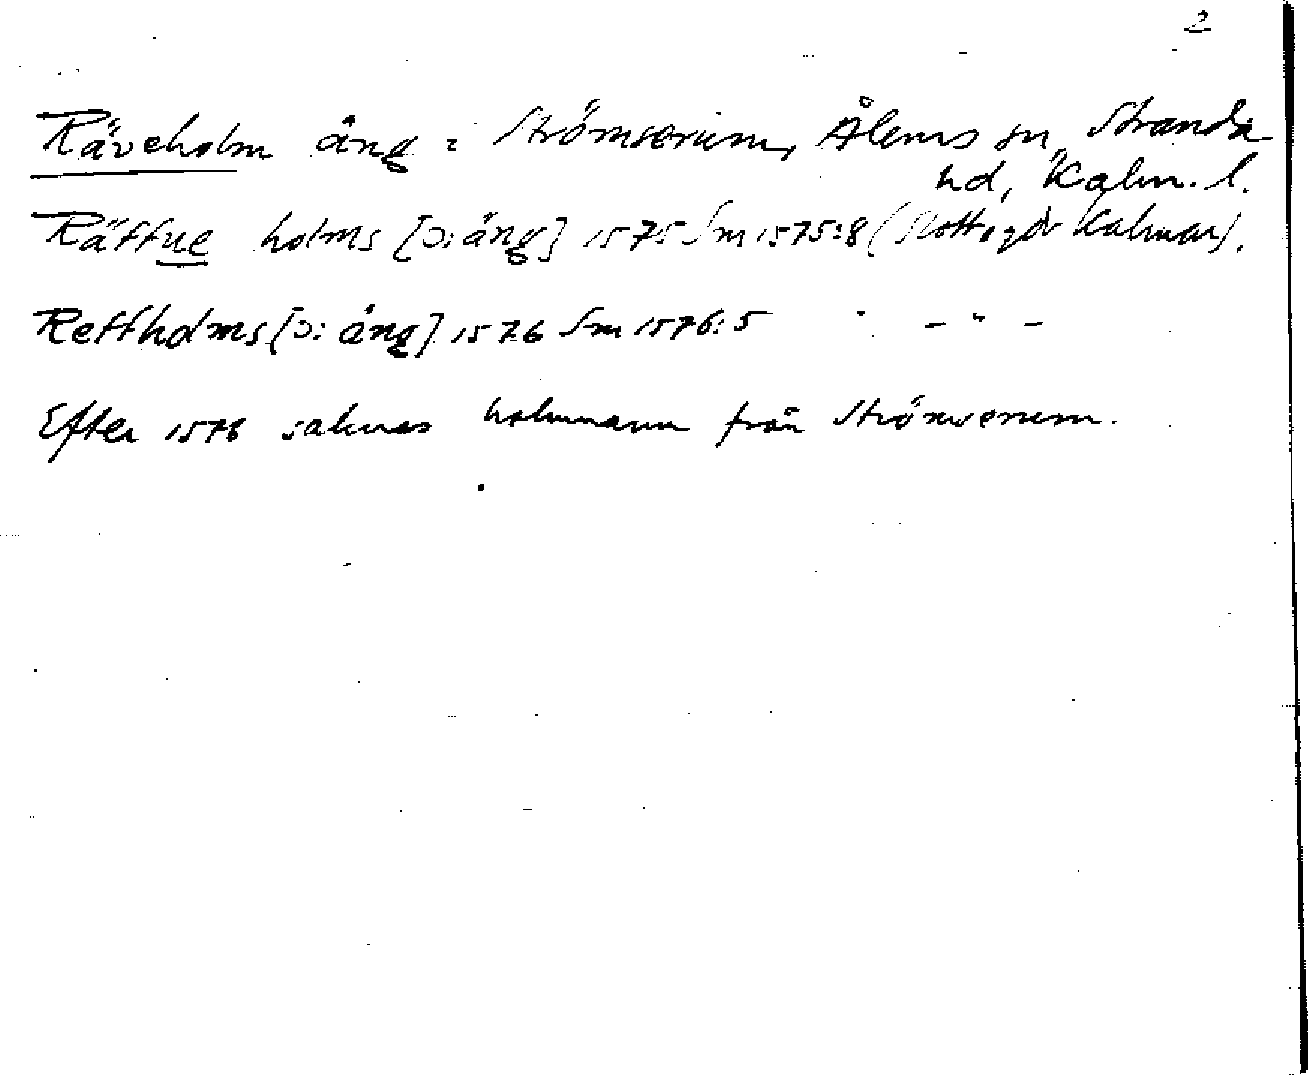 2
Räveholm äng i Strömserum, Ålems sn, Stranda
hd, Kalm. l.
Räffue holms [ɔ: äng] 1575 Sm 1575:8 (Slottsgdr Kalmar).
Reffholms [ɔ: äng] 1576 Sm 1576:5 - " -
Efter 1576 saknas holmnamn från Strömserum.